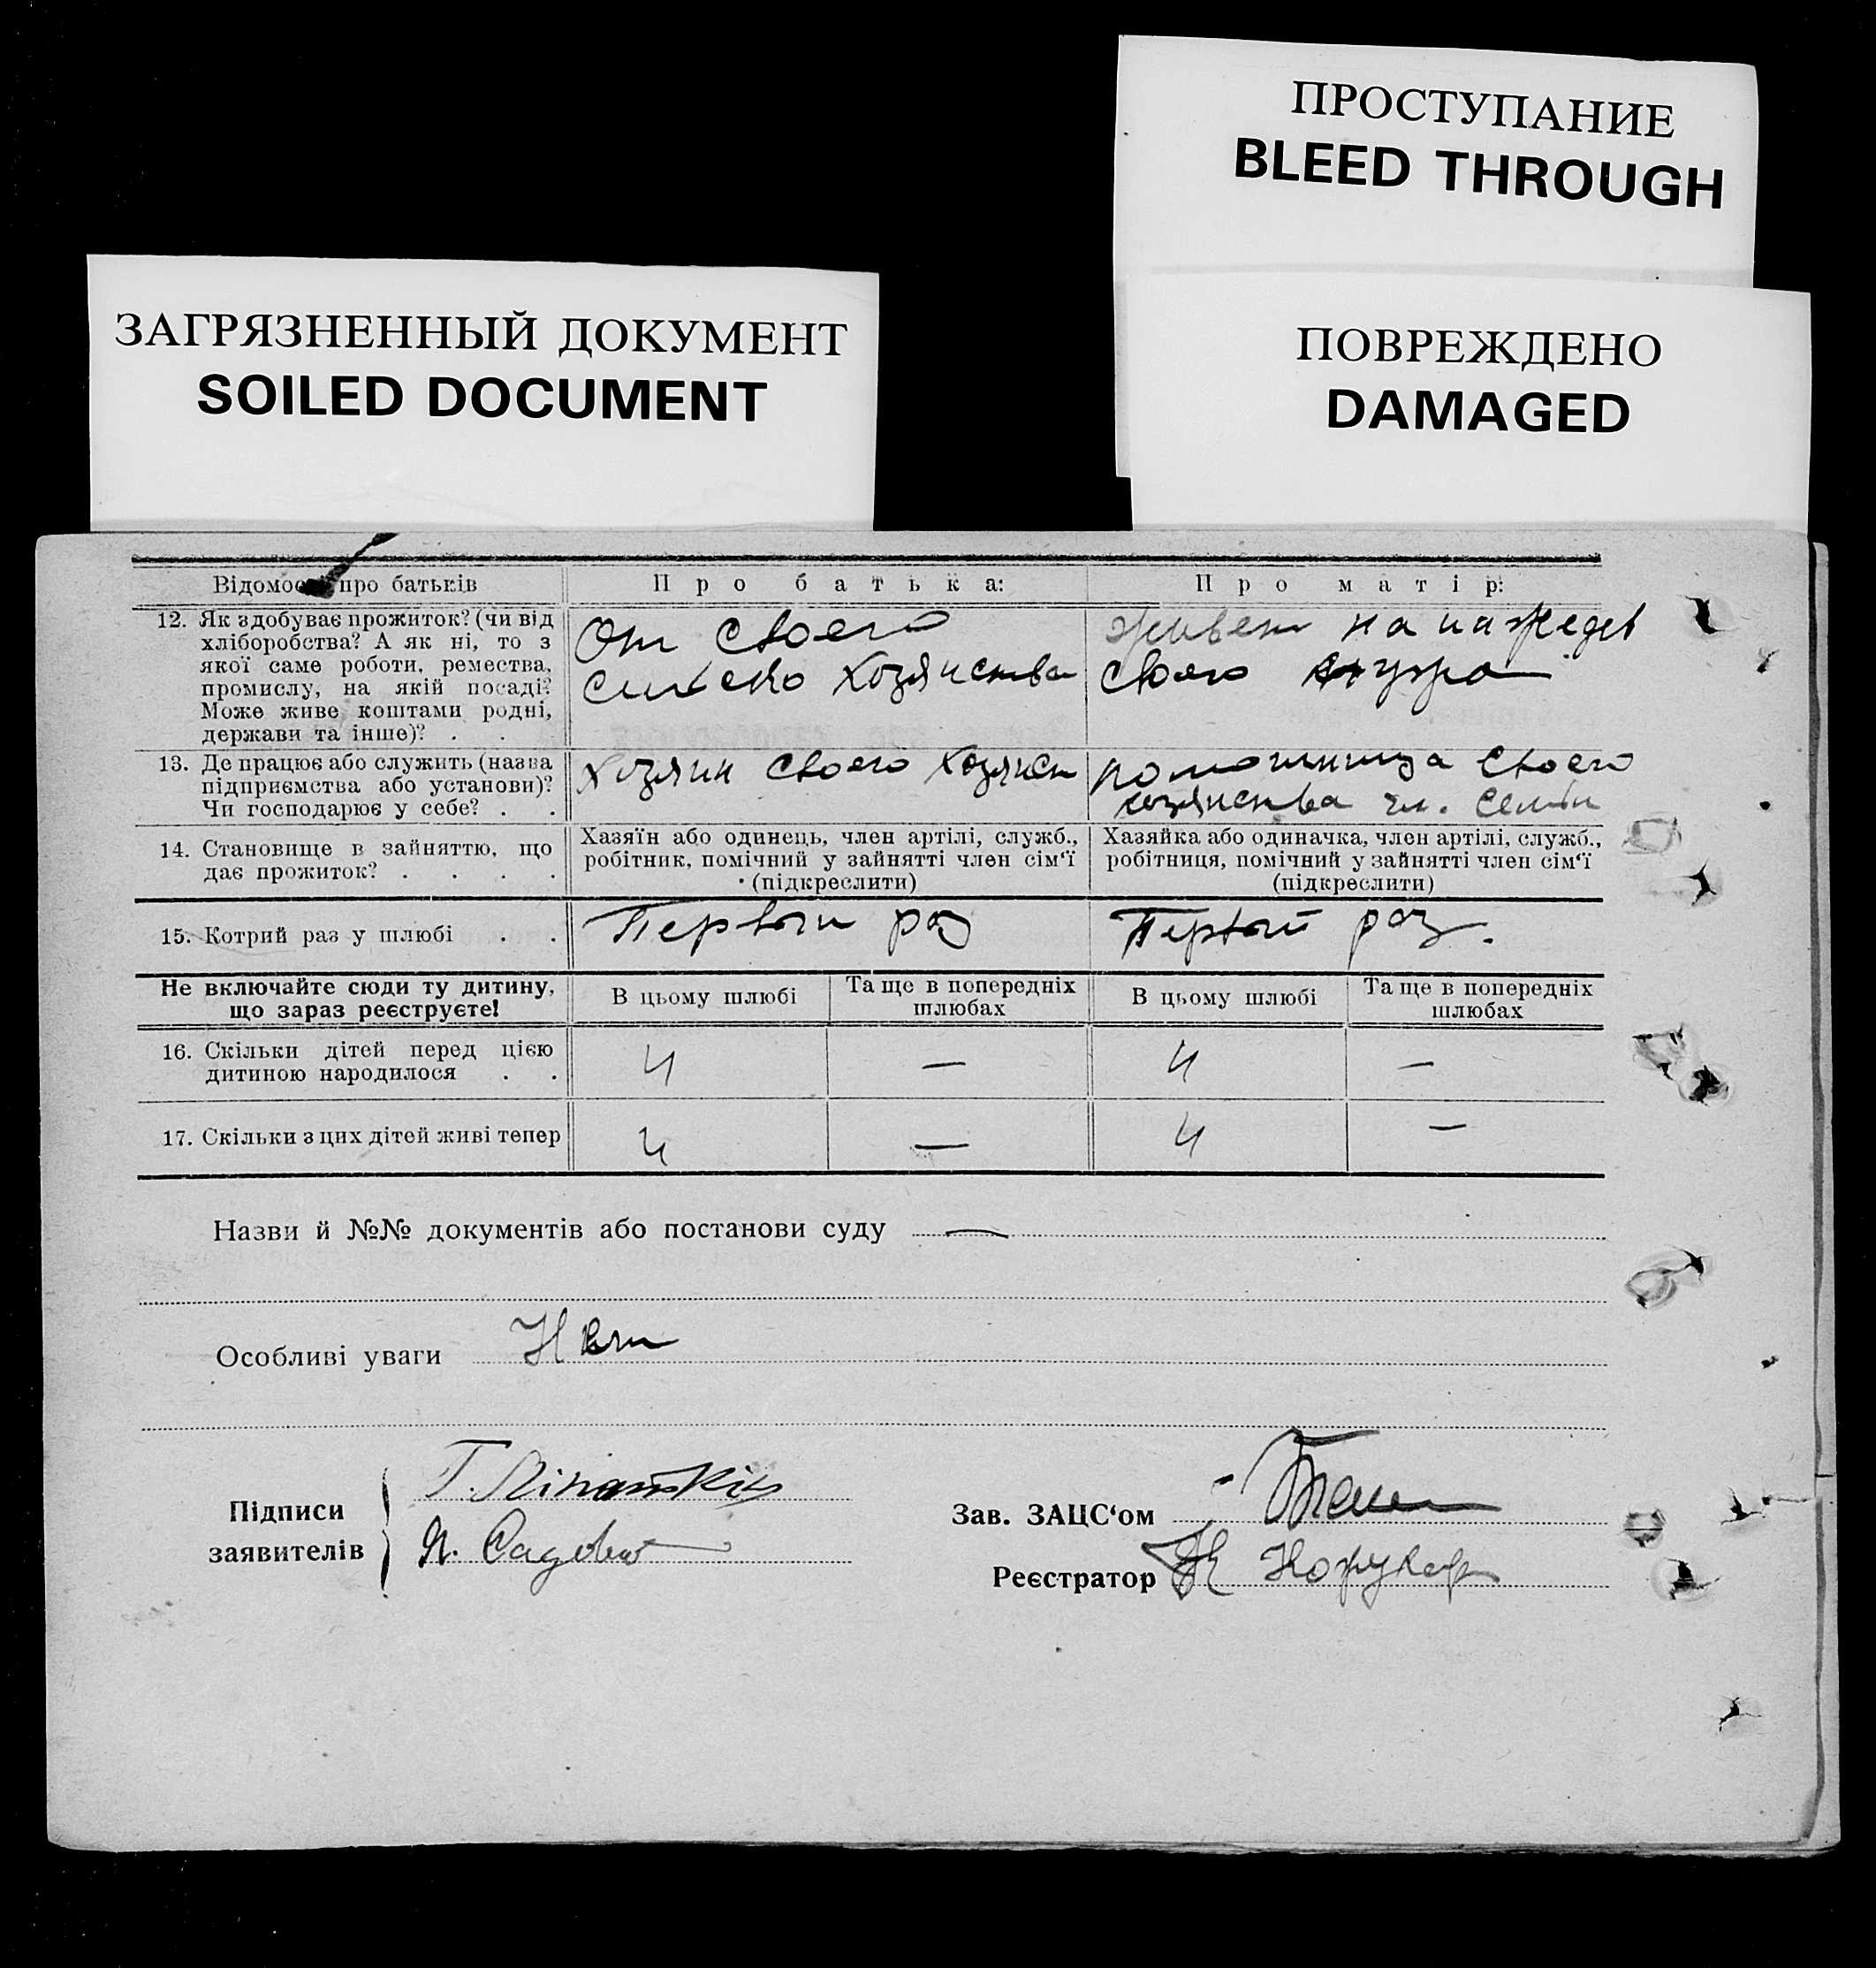 ПРОСТУПАНИЕ
BLEED THROUGH
ЗАГРЯЗНЕННЫЙ ДОКУМЕНТ
SOILED DOCUMENT
ПОВРЕЖДЕНО
DAMAGED
Відомості про батьків
П р о б а т ь к а:
П р о м а т і р:
12. Як здобуває прожиток? (чи від
хліборобства? А як ні, то з
якої саме роботи, ремества,
промислу, на якій посаді?
Може живе коштами родні,
держави та інше)? . .
От своего
сельско хозяиства
живет на
своего мужа
13. Де працює або служить (назва
підприємства або установи)?
Чи господарює у себе? . .
Хозяин своего хозяйст
помошница своего
хозяиства чл. семьи
14. Становище в зайняттю, що
дає прожиток? . . . .
Хазяїн або одинець, член артілі, служб.,
робітник, помічний у зайнятті член сім'ї
(підкреслити)
Хазяйка або одиначка, член артілі, служб.,
робітниця, помічний у зайнятті член сім'ї
(підкреслити)
15. Котрий раз у шлюбі . .
Первый раз
Первый раз.
Не включайте сюди ту дитину,
що зараз реєструєте!
В цьому шлюбі
Та ще в попередніх
шлюбах
В цьому шлюбі
Та ще в попередніх
шлюбах
16. Скільки дітей перед цією
дитиною народилося . .
4 — 4 —
17. Скільки з цих дітей живі тепер
4 — 4 —
Назви й №№ документів або постанови суду —
Особливі уваги Нет
Підписи
заявителів
Т.
Я. Садово
Зав. ЗАЦС'ом
Реєстратор